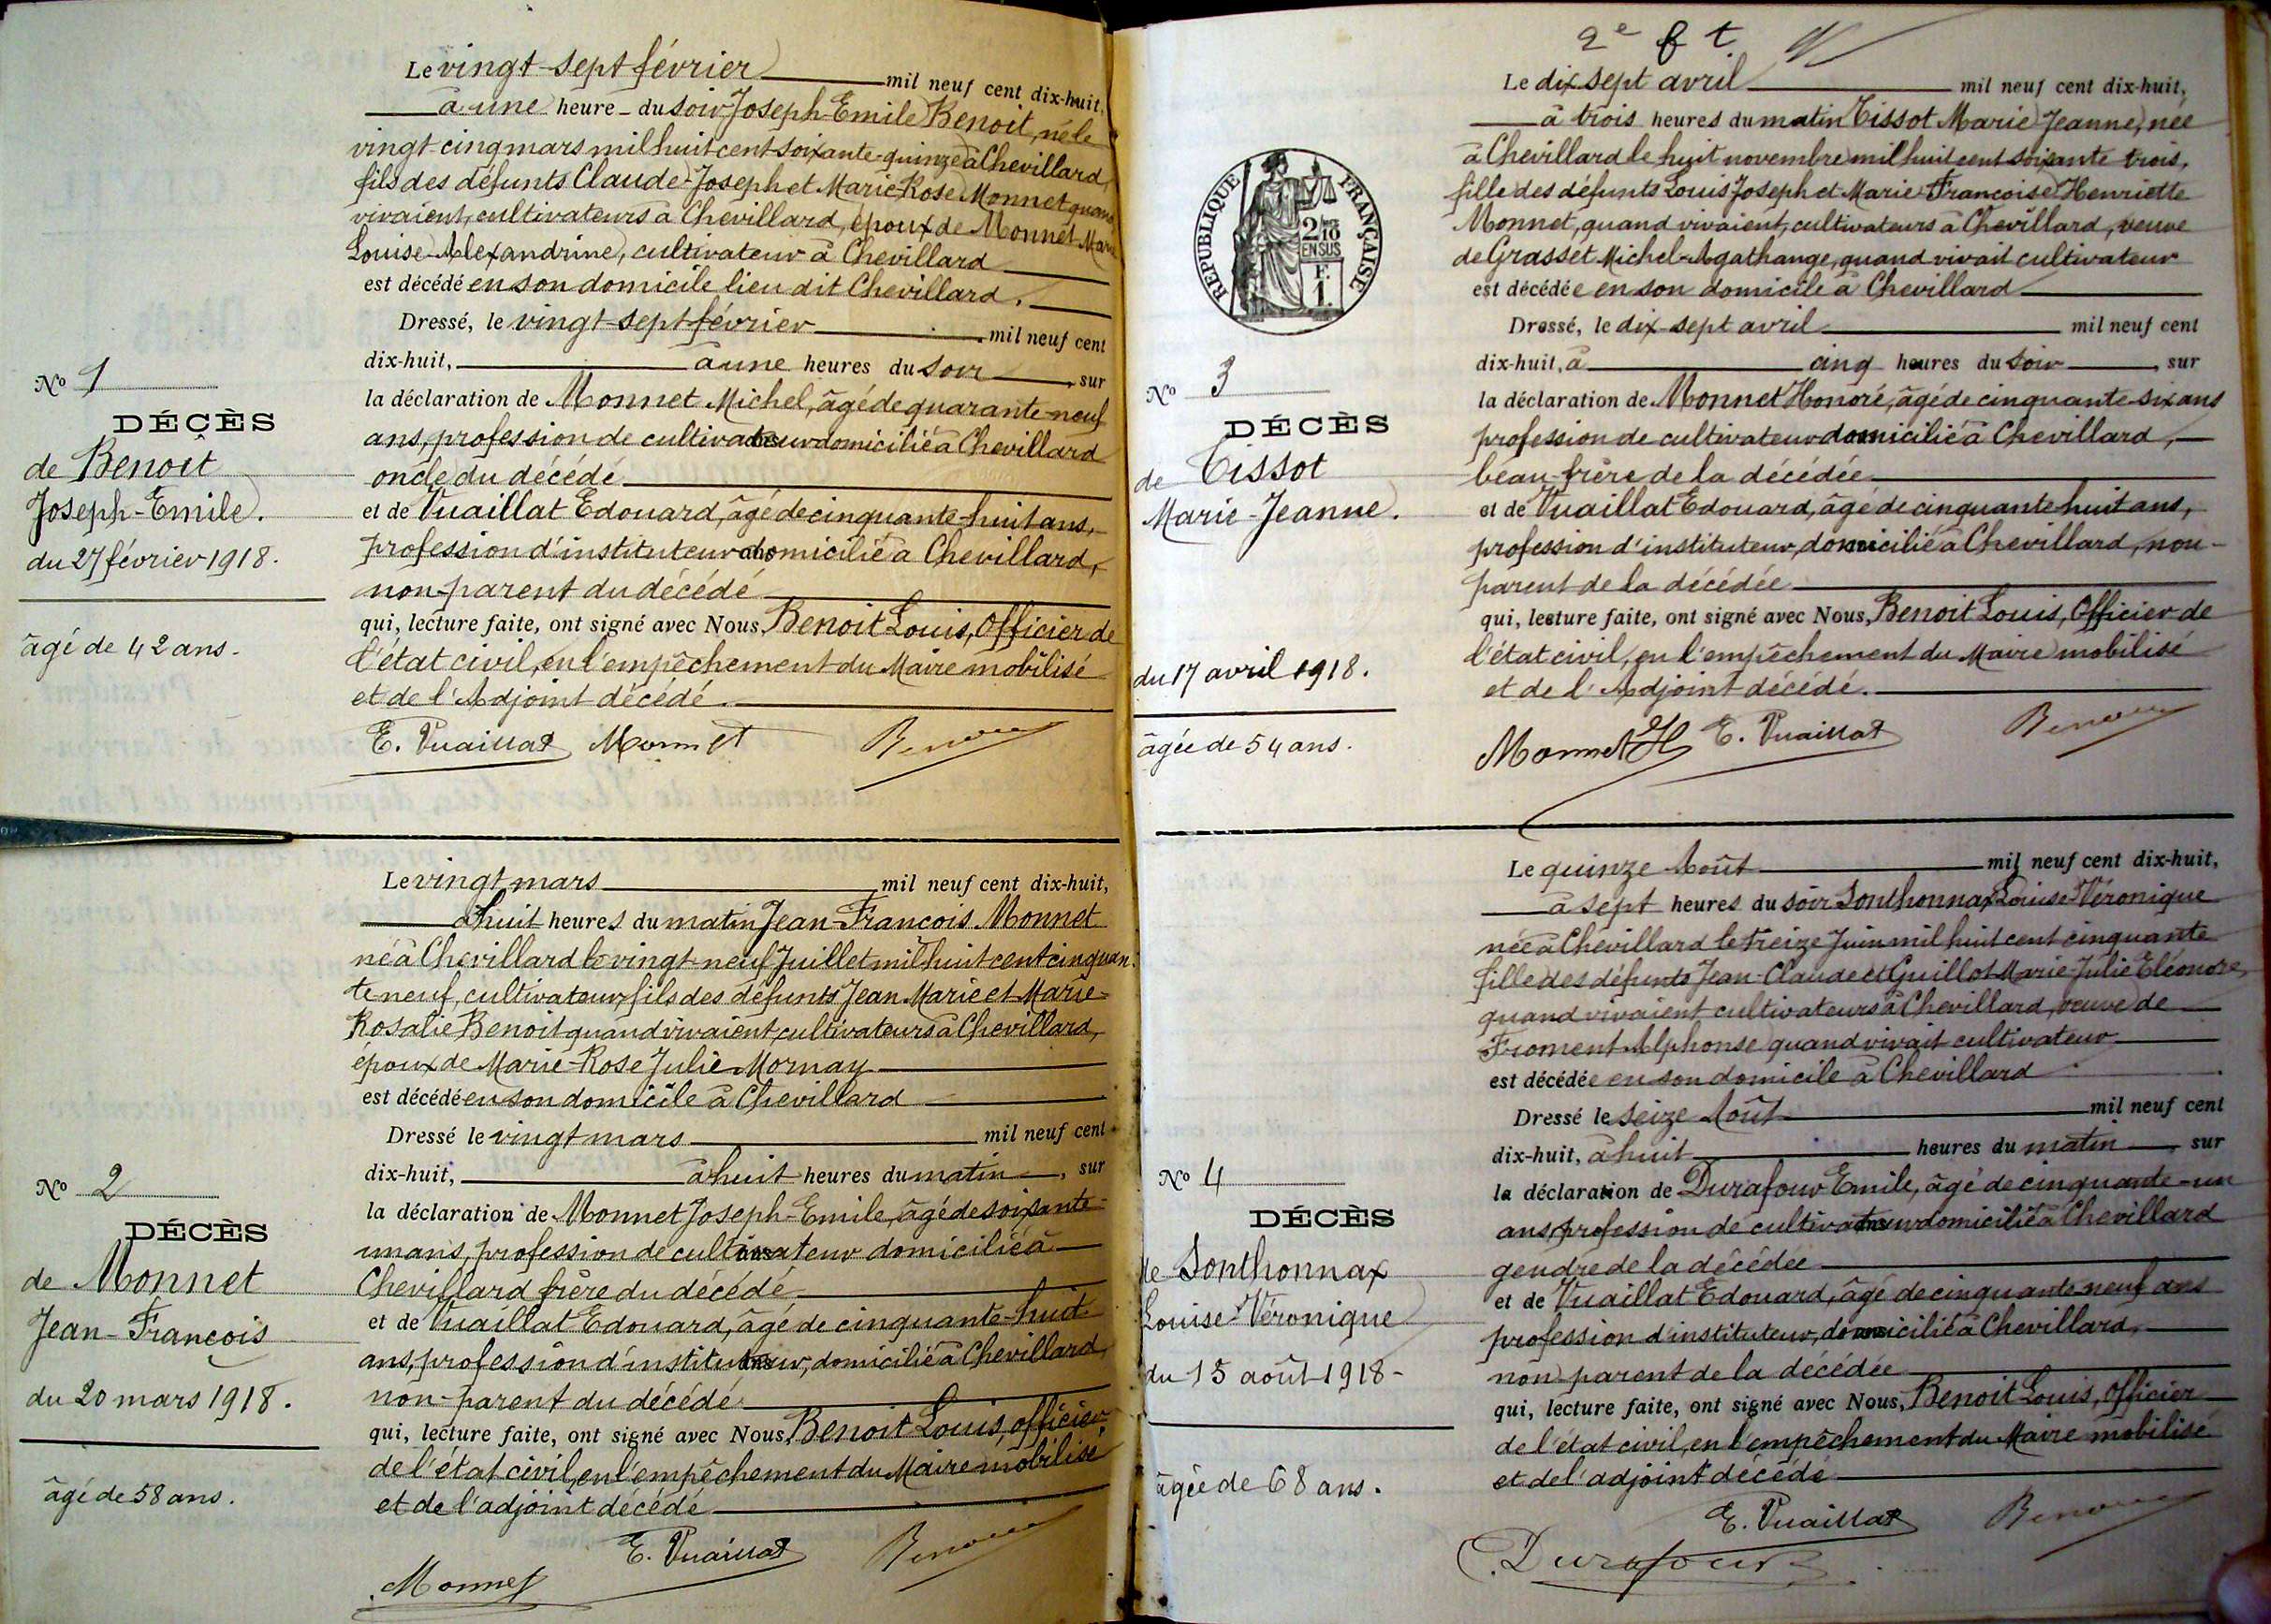 Le vingt-sept février mil neuf cent dix-huit,
à une heure du soir Joseph-Emile Benoit, né le
vingt-cinq mars mil huit cent soixante-quinze à Chevillard,
fils des défunts Claude-Joseph et Marie Rose Monnet quand
vivaient, cultivateurs à Chevillard, époux de Monnet Marie
Louise Alexandrine, cultivateur à Chevillard
est décédé en son domicile lieu dit Chevillard.
Dressé, le vingt-sept février mil neuf cent
dix-huit, à une heures du soir, sur
la déclaration de Monnet Michel, âgé de quarante-neuf
ans, profession de cultivateur domicilié à Chevillard
oncle du décédé
et de Vuaillat Edouard, âgé de cinquante-huit ans,
profession d'instituteur domicilié à Chevillard,
non-parent du décédé
qui, lecture faite, ont signé avec Nous, Benoit Louis, Officier de
l'état civil, en l'empêchement du Maire mobilisé
et de l'Adjoint décédé.
E. Vuaillat Monnet Benoit
No 1
DÉCÈS
de Benoît
Joseph-Emile.
du 27 février 1918.
âgé de 42 ans.
Le vingt mars mil neuf cent dix-huit,
à huit heures du matin Jean-François Monnet
né à Chevillard le vingt-neuf Juillet mil huit cent cinquan-
te neuf, cultivateur, fils des défunts Jean Marie et Marie-
Rosalie Benoit quand vivaient, cultivateurs à Chevillard,
époux de Marie-Rose Julie Mornay
est décédé en son domicile à Chevillard
Dressé le vingt mars mil neuf cent
dix-huit, à huit heures du matin, sur
la déclaration de Monnet Joseph-Emile, âgé de soixante-
un ans, profession de cultivateur domicilié à
Chevillard frère du décédé
et de Vuaillat Edouard, âgé de cinquante-huit
ans, profession d'instituteur, domicilié à Chevillard,
non-parent du décédé
qui, lecture faite, ont signé avec Nous, Benoit Louis, officier
de l'état civil, en l'empêchement du Maire mobilisé
et de l'adjoint décédé
E. Vuaillat Benoit
Monnet
No 2
DÉCÈS
de Monnet
Jean-François
du 20 mars 1918.
âgé de 58 ans.
2e f t
Le dix sept avril mil neuf cent dix-huit,
à trois heures du matin Tissot Marie Jeanne, née
à Chevillard le huit novembre mil huit cent soixante trois,
fille des défunts Louis Joseph et Marie Françoise Henriette
Monnet, quand vivaient, cultivateurs à Chevillard, veuve
de Grasset Michel-Agathange, quand vivait cultivateur
est décédée en son domicile à Chevillard
Dressé, le dix-sept avril mil neuf cent
dix-huit, à cinq heures du soir, sur
la déclaration de Monnet Honoré, âgé de cinquante-six ans
profession de cultivateur domicilié à Chevillard,
beau-frère de la décédée
et de Vuaillat Edouard, âgé de cinquante huit ans,
profession d'instituteur, domicilié à Chevillard, non-
parent de la décédée
qui, lecture faite, ont signé avec Nous, Benoit Louis, Officier de
l'état civil, en l'empêchement du Maire mobilisé
et de l'Adjoint décédé.
Monnet H E. Vuaillat Benoit
RÉPUBLIQUE FRANÇAISE
2/10
EN SUS
F.
1.
No 3
DÉCÈS
de Tissot
Marie-Jeanne.
du 17 avril 1918.
âgée de 54 ans.
Le quinze Août mil neuf cent dix-huit,
à sept heures du soir Sonthonnax Louise Véronique
née à Chevillard le treize Juin mil huit cent cinquante
fille des défunts Jean-Claude et Guillot Marie-Julie Eléonore,
quand vivaient cultivateurs à Chevillard, veuve de
Froment Alphonse quand vivait cultivateur
est décédée en son domicile à Chevillard
Dressé le seize Août mil neuf cent
dix-huit, à huit heures du matin, sur
la déclaration de Durafour Emile, âgé de cinquante-un
ans, profession de cultivateur domicilié à Chevillard
gendre de la décédée
et de Vuaillat Edouard, âgé de cinquante neuf ans
profession d'instituteur, domicilié à Chevillard,
non parent de la décédée
qui, lecture faite, ont signé avec Nous, Benoit Louis, Officier
de l'état civil, en l'empêchement du Maire mobilisé
et de l'adjoint décédé
E. Vuaillat Benoit
Durafour
No 4
DÉCÈS
de Sonthonnax
Louise Véronique
du 15 août 1918-
âgée de 68 ans.